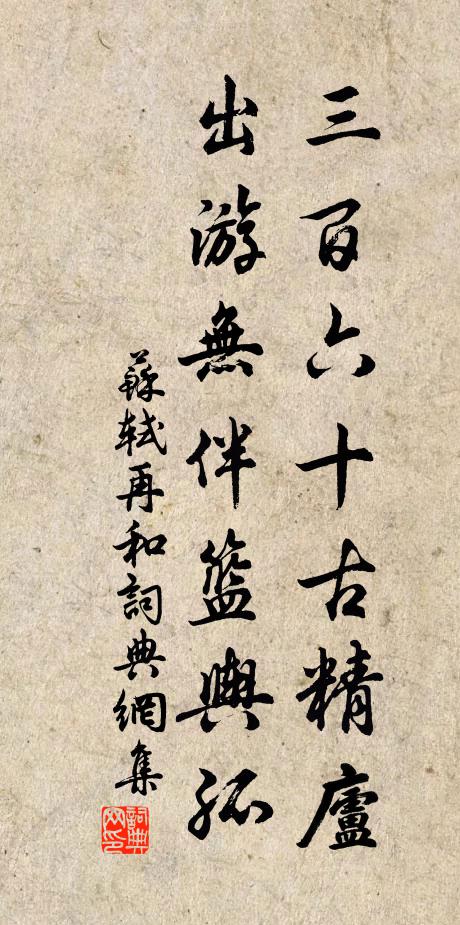 三百六十古精廬
出游無伴籃輿孤
蘇軾再和詞典網集
詞典網印